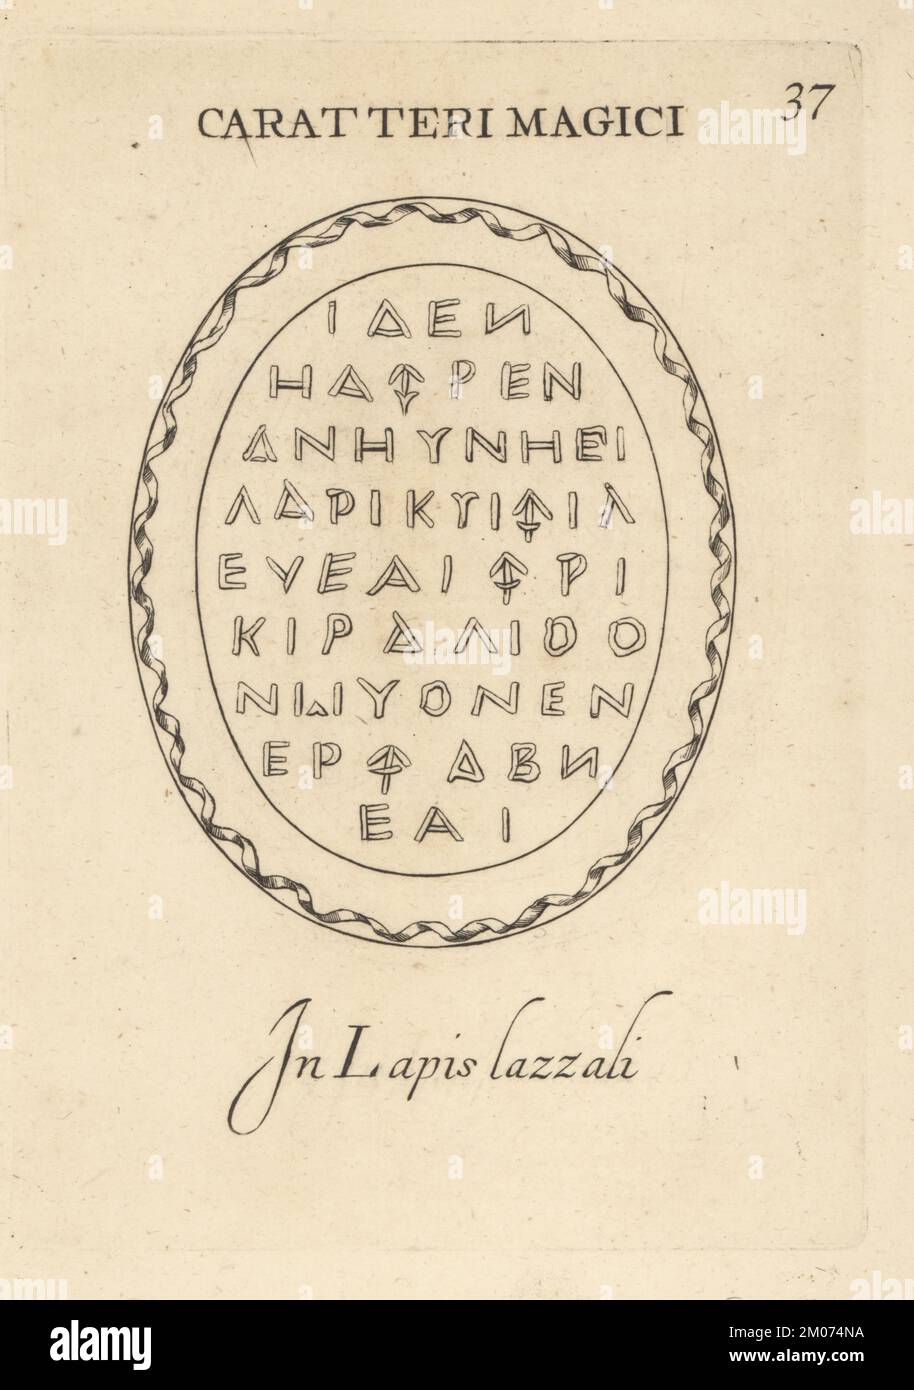 37
CARATTERI MAGICI
ΙΔΕΝ
ΗΔ RΕΝ
ΔΝΗΥΝΗΕΙ
ΛΔΡΙΚΥΙ ΙΛ
ΕΥΕΑΙ ΡΙ
ΚΙΡΔΛΙΟΟ
ΥΟΝΕΝ
ΕΡ ΔΒΝ
ΕΑΙ
In Lapis lazzali
alamy
Image ID: 2M074NA
www.alamy.com